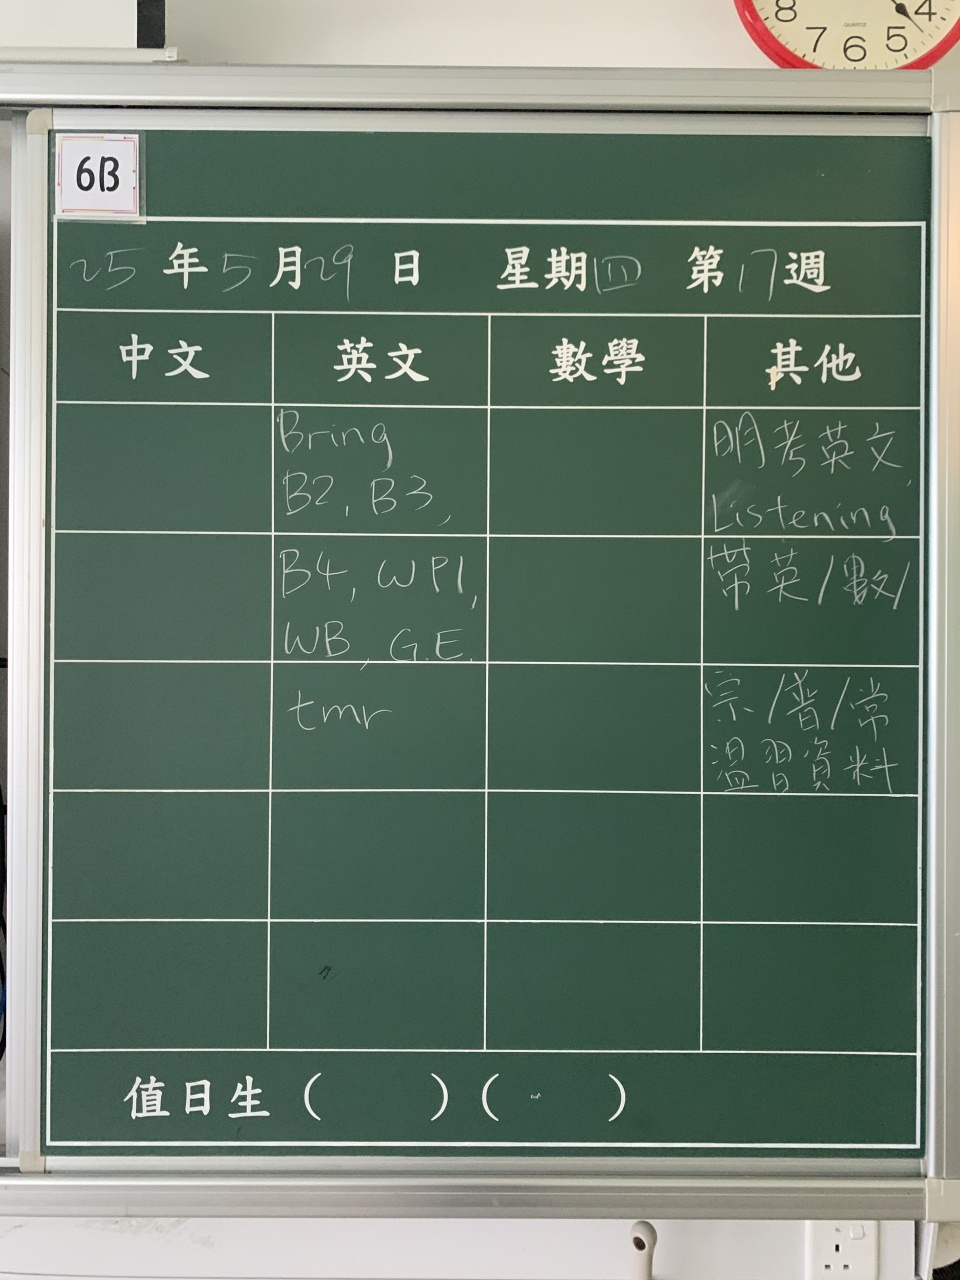 8 7 6 5 4
QUARTZ
6B
25年5月29日 星期四 第17週
中文 英文 數學 其他
Bring
B2, B3,
明考英文,
Listening
B4, WP1,
WB, G.E.
帶英/數/
tmr
宗/普/常
溫習資料
值日生 ( ) ( )